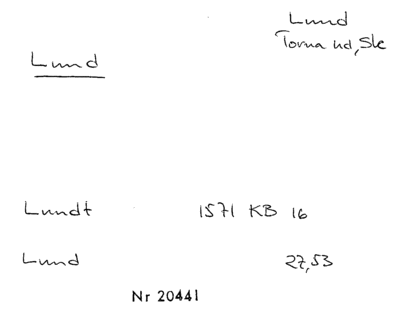 Lund
Torna hd, Sk
Lund
Lundt 1571 KB 16
Lund 27,53
Nr 20441